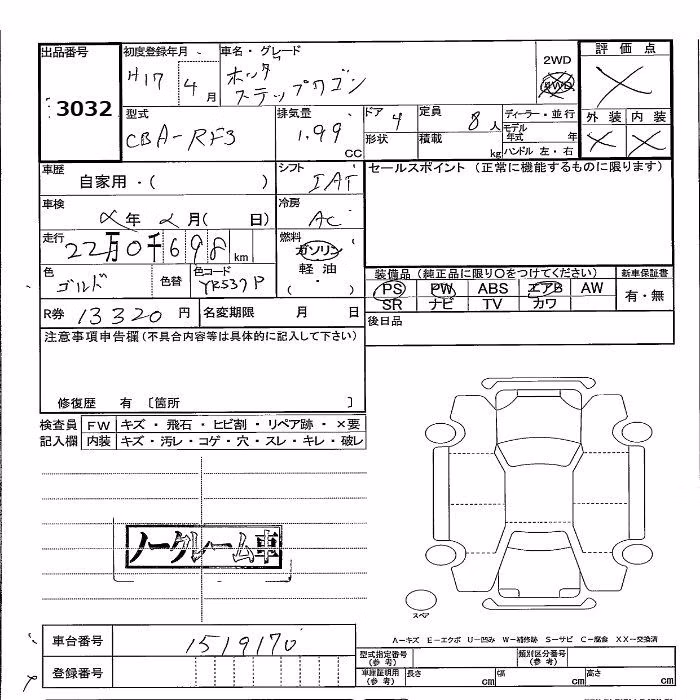 出品番号 初度登録年月 車名・グレード 2WD 評価点
3032 H17 4月 ホンダ ステップワゴン 4WD ×
型式 排気量 ドア 4 定員 8人 ディーラー・並行 外装 内装
CBA-RF3 1.99 CC 形状 積載 kg モデル年式 年 × ×
ハンドル 左・右
車歴 シフト セールスポイント (正常に機能するものに限ります)
自家用・( ) IAT
車検 冷房
年 2月( 日) AC
走行 燃料
22万0千698km ガソリン
色 色替 色コード 軽油 装備品 (純正品に限り○をつけてください) 新車保証書
ゴルド YR537P ( ・ ) PS PW ABS エアB AW 有・無
SR ナビ TV カワ
R券 13320円 名変期限 月 日 後日品
注意事項申告欄(不具合内容等は具体的に記入して下さい)
修復歴 有 〔箇所 〕
検査員 FW キズ・飛石・ヒビ割・リペア跡・×要
記入欄 内装 キズ・汚レ・コゲ・穴・スレ・キレ・破レ
ノークレーム車
スペア
A−キズ E−エクボ U−凹み W−補修跡 S−サビ C−腐食 XX−交換済
車台番号 1519170 型式指定番号(参考) 類別区分番号(参考)
登録番号 車庫証明用(参考) 長さ cm 幅 cm 高さ cm